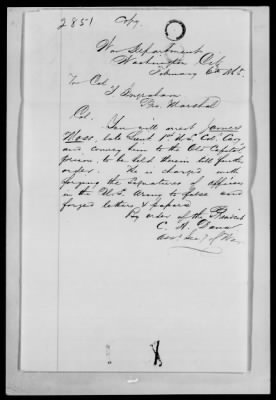 2851 Copy.
War Department
Washington City
February 6th 1865
To Col
T. Ingraham
Pro. Marshal
Col.
You will arrest James
Moss, late Lieut 1st U.S. Col. Cav
and convey him to the Old Capitol
prison, to be held therein till further
orders. He is charged with
forging the signatures of officers
in the U.S. Army to false and
forged letters & papers
By order of the President
C. A. Dana
Asst Secy of War